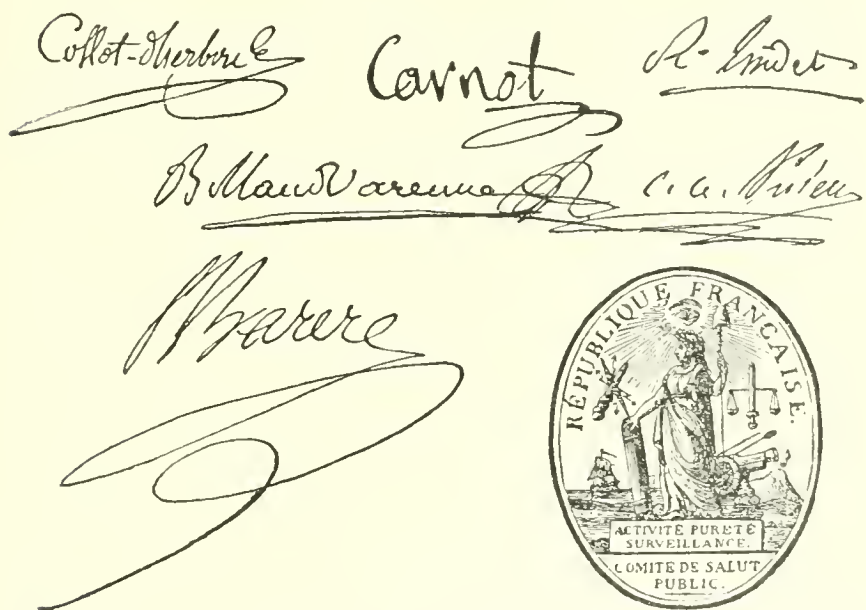 Collot-d'herbois Carnot R. Lindet
BillaudVarenne C. a. Prieur
B Barere
RÉPUBLIQUE FRANÇAISE.
ACTIVITÉ PURETÉ
SURVEILLANCE.
COMITÉ DE SALUT
PUBLIC.